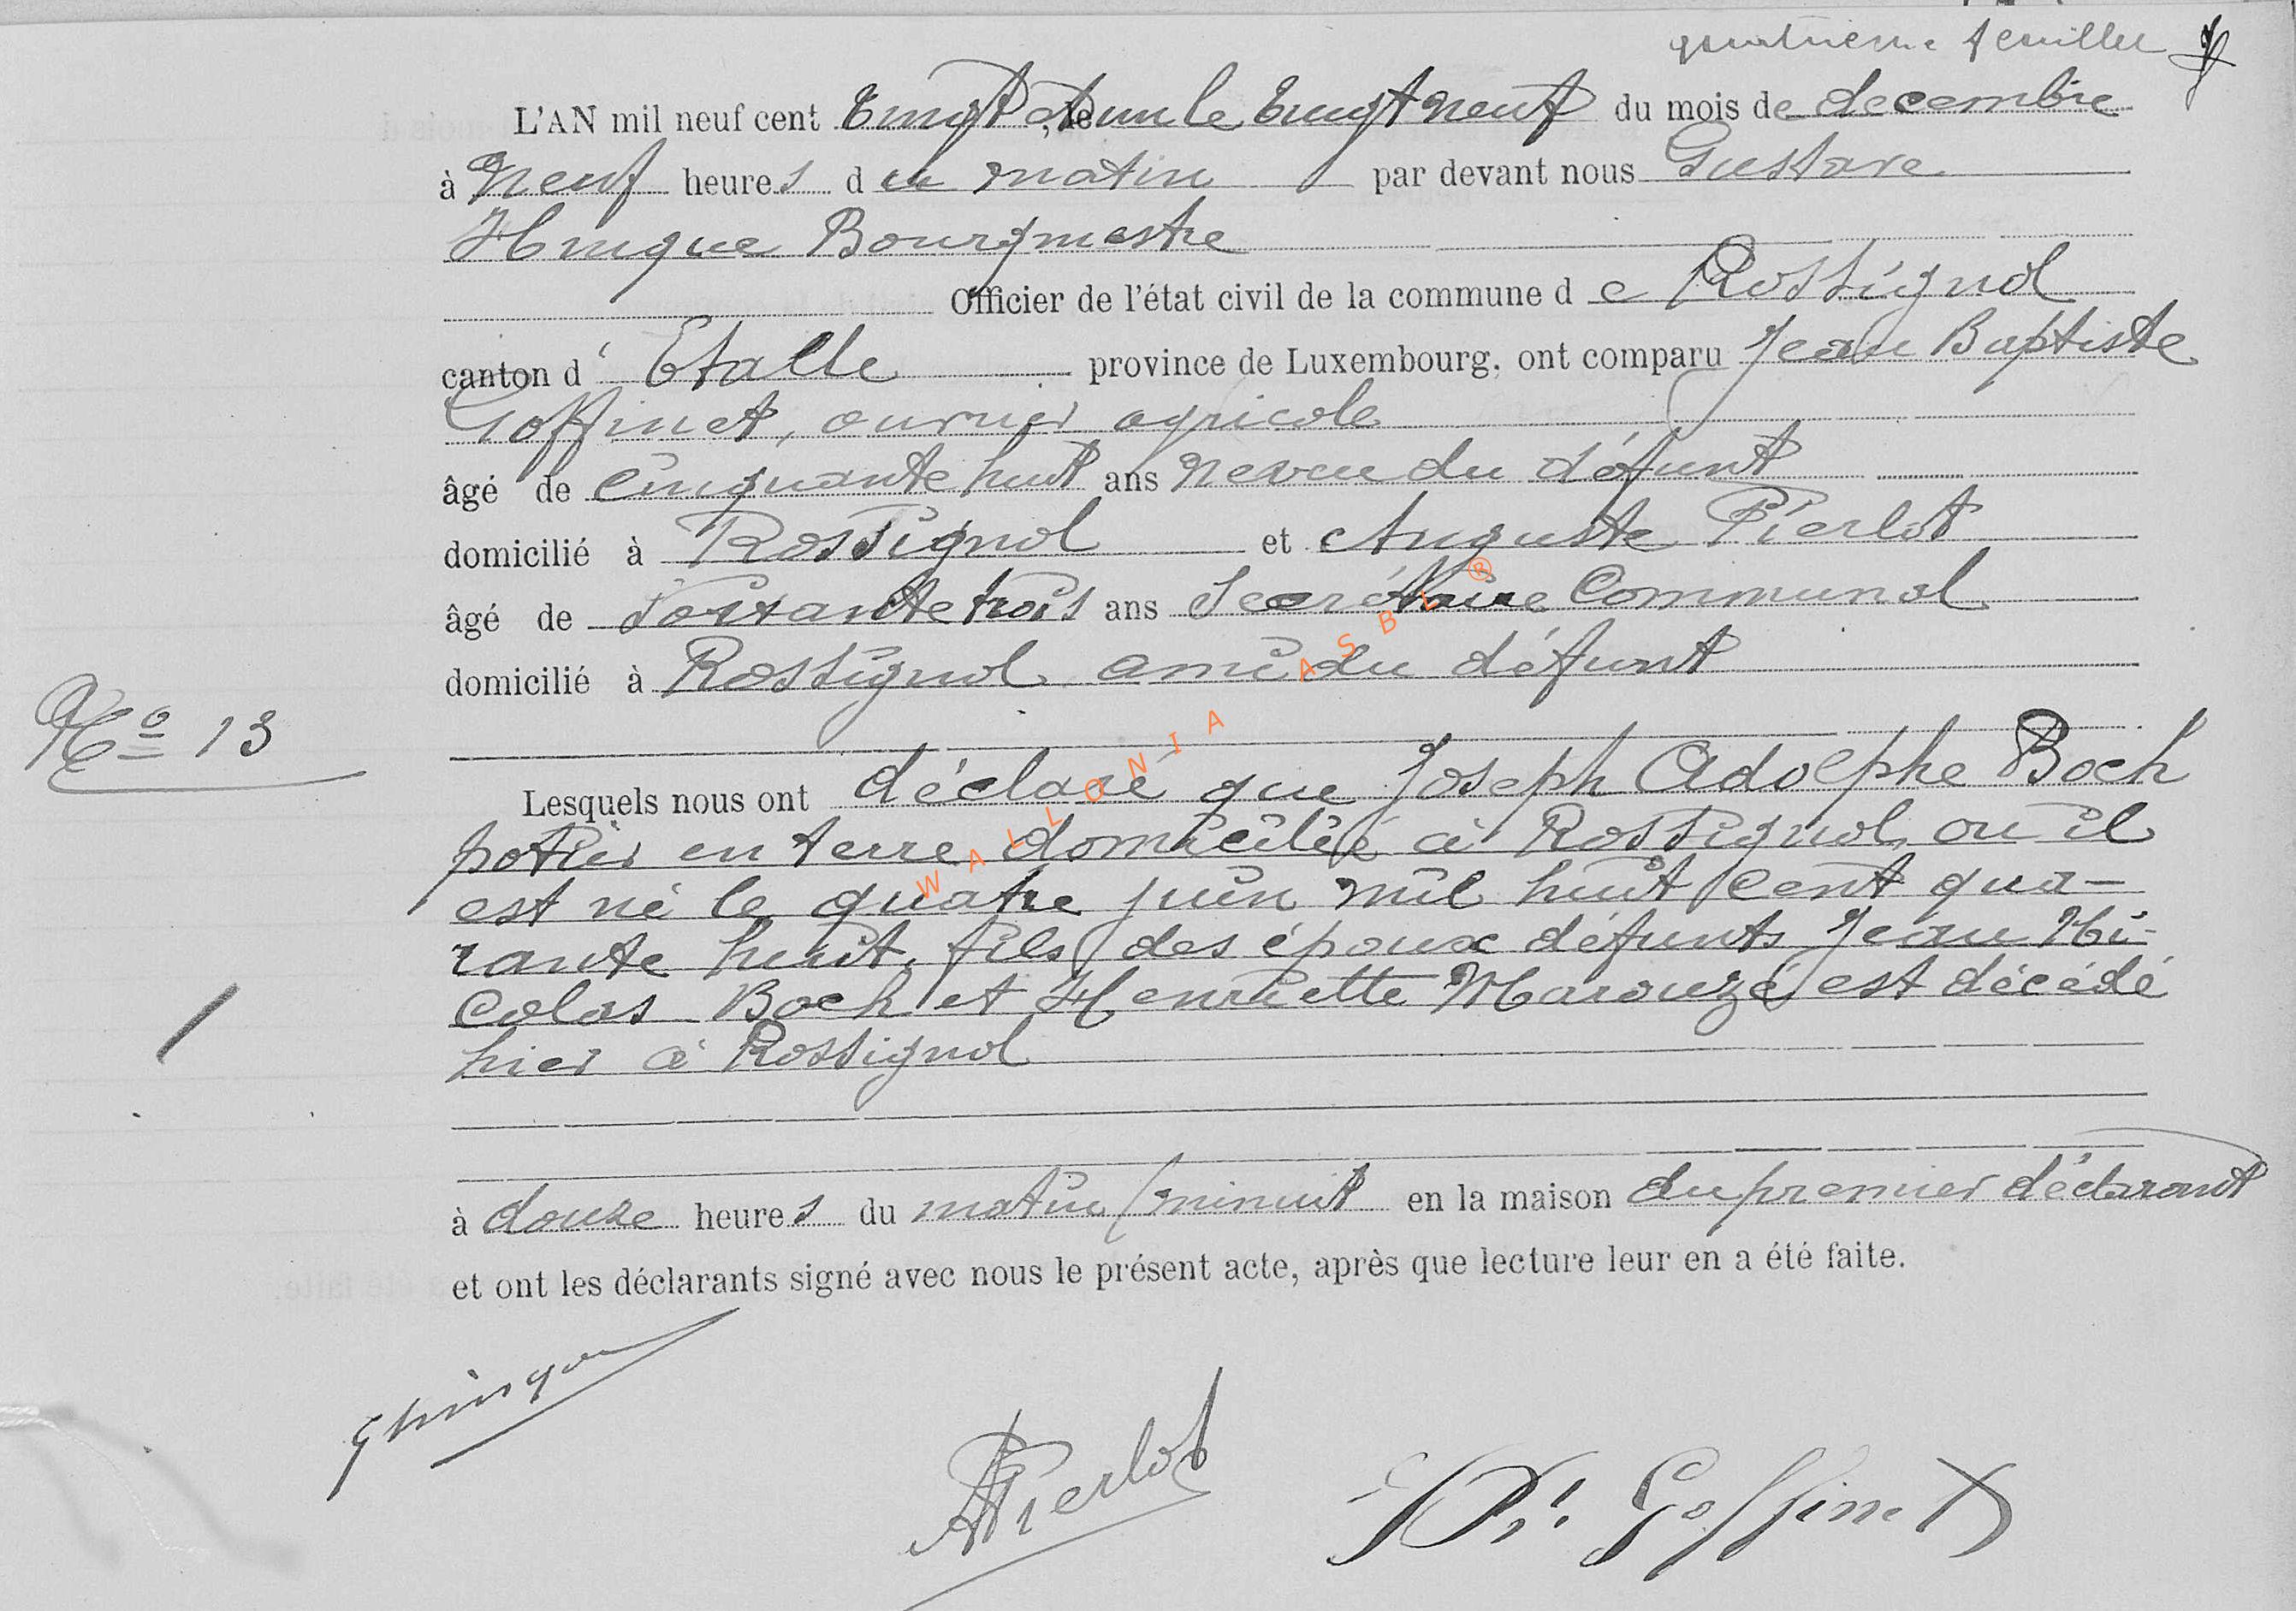 quatrieme feuillet
L'AN mil neuf cent vingt et un le vingt neuf du mois de decembre
à neuf heures du matin par devant nous Gustave
Hinque Bourgmestre
Officier de l'état civil de la commune de Rossignol
canton d' Etalle province de Luxembourg, ont comparu Jean Baptiste
Goffinet, ouvrier agricole
âgé de cinquante huit ans neveu du défunt
domicilié à Rossignol et Auguste Pierlot
âgé de soixante trois ans Secrétaire Communal
domicilié à Rossignol ami du défunt
No 13
Lesquels nous ont déclaré que Joseph Adolphe Boch
potier en terre domicilié à Rossignol où il
est né le quatre juin mil huit cent qua-
rante huit, fils des époux défunts Jean Ni-
colas Boch et Henriette Marouzé est décédé
hier à Rossignol
à douze heures du matin (minuit en la maison du premier déclarant
et ont les déclarants signé avec nous le présent acte, après que lecture leur en a été faite.
GHinque
APierlot
Goffinet
WALLONIA ASBL ®